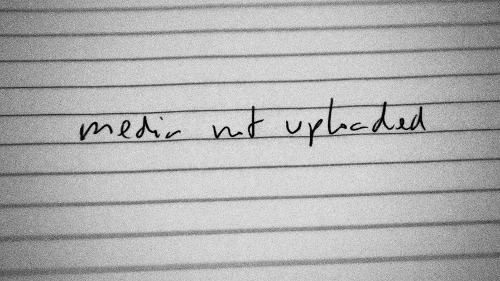 media not uploaded